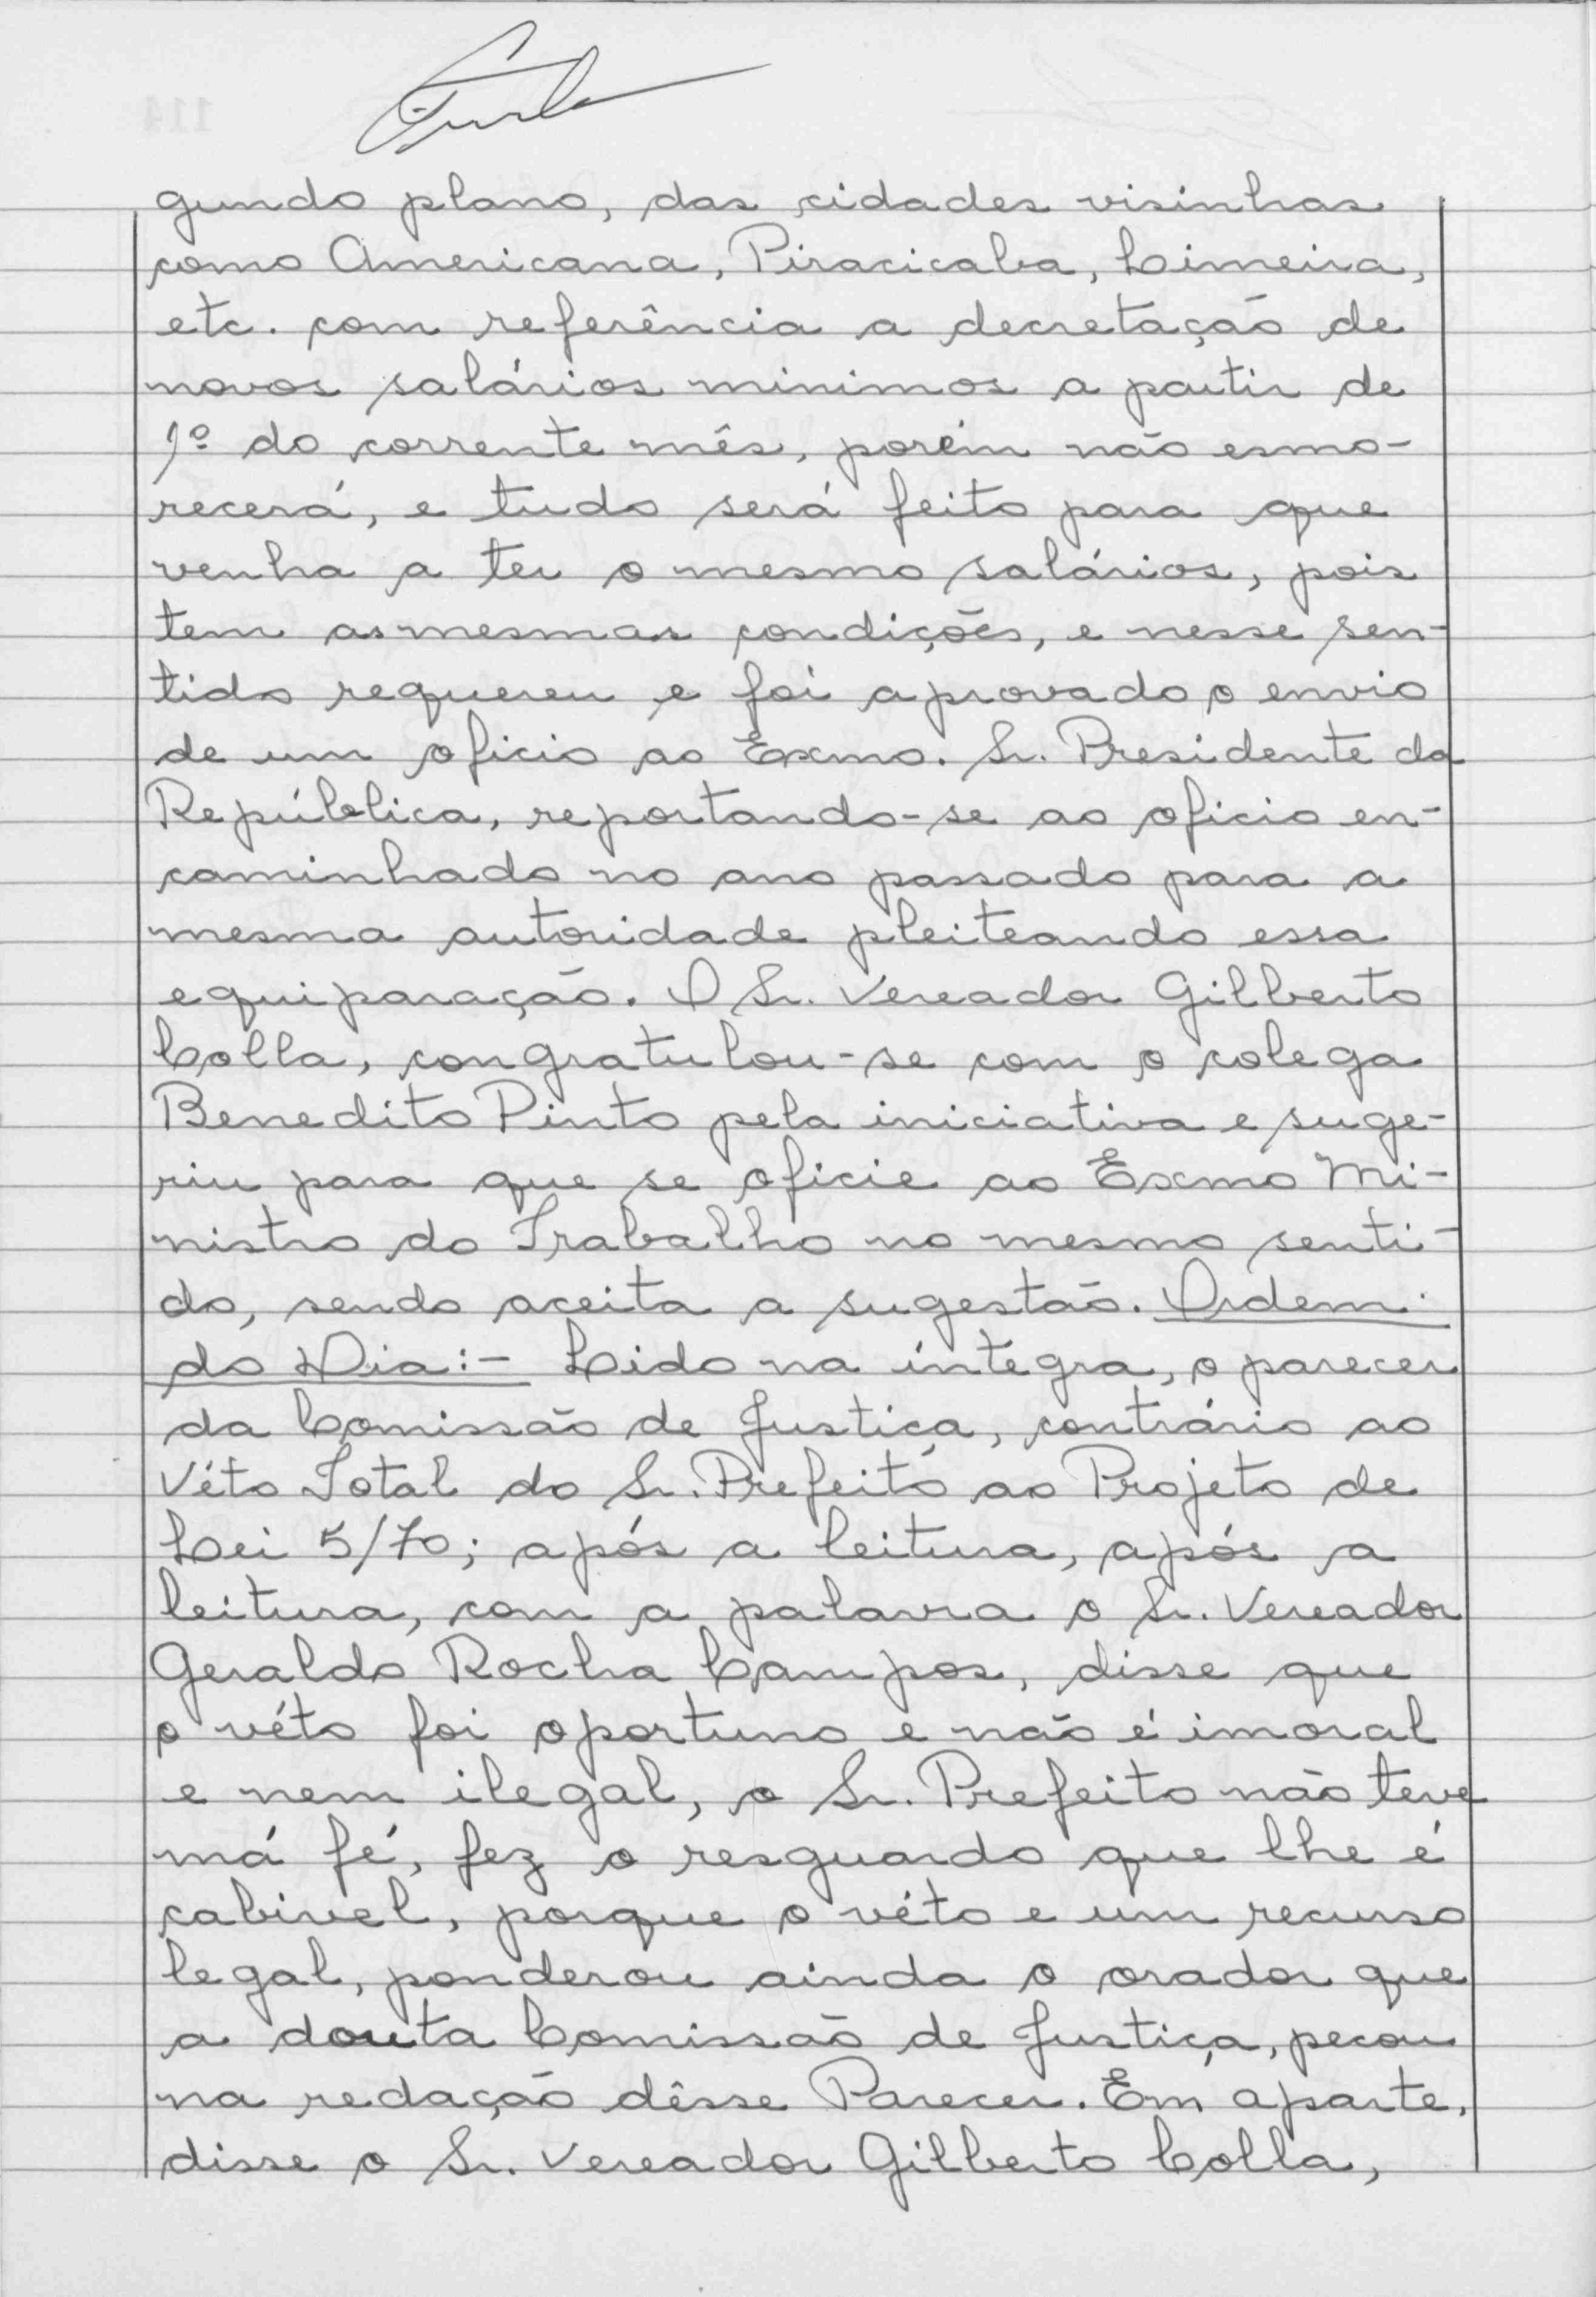 gundo plano, das cidades visinhas
como Americana, Piracicaba, Limeira,
etc. com referência a decretação de
novos salários minimos a partir de
1º do corrente mês, porém não esmo-
recerá, e tudo será feito para que
venha a ter o mesmo salários, pois
tem as mesmas condições, e nesse sen-
tido requereu e foi aprovado o envio
de um oficio ao Exmo. Sr. Presidente da
República, reportando-se ao oficio en-
caminhado no ano passado para a
mesma autoridade pleiteando essa
equiparação. O Sr. Vereador Gilberto
Colla, congratulou-se com o colega
Benedito Pinto pela iniciativa e suge-
riu para que se oficie ao Exmo Mi-
nistro do Trabalho no mesmo senti-
do, sendo aceita a sugestão. Ordem
do Dia:- Lido na íntegra, o parecer
da Comissão de Justiça, contrário ao
Véto Total do Sr. Prefeito ao Projeto de
Lei 5/70; após a leitura, após a
leitura, com a palavra o Sr. Vereador
Geraldo Rocha Campos, disse que
o véto foi oportuno e não é imoral
e nem ilegal, o Sr. Prefeito não teve
má fé, fez o resguardo que lhe é
cabivel, porque o véto e um recurso
legal, ponderou ainda o orador que
a douta Comissão de Justiça, pecou
na redação dêsse Parecer. Em aparte,
disse o Sr. Vereador Gilberto Colla,